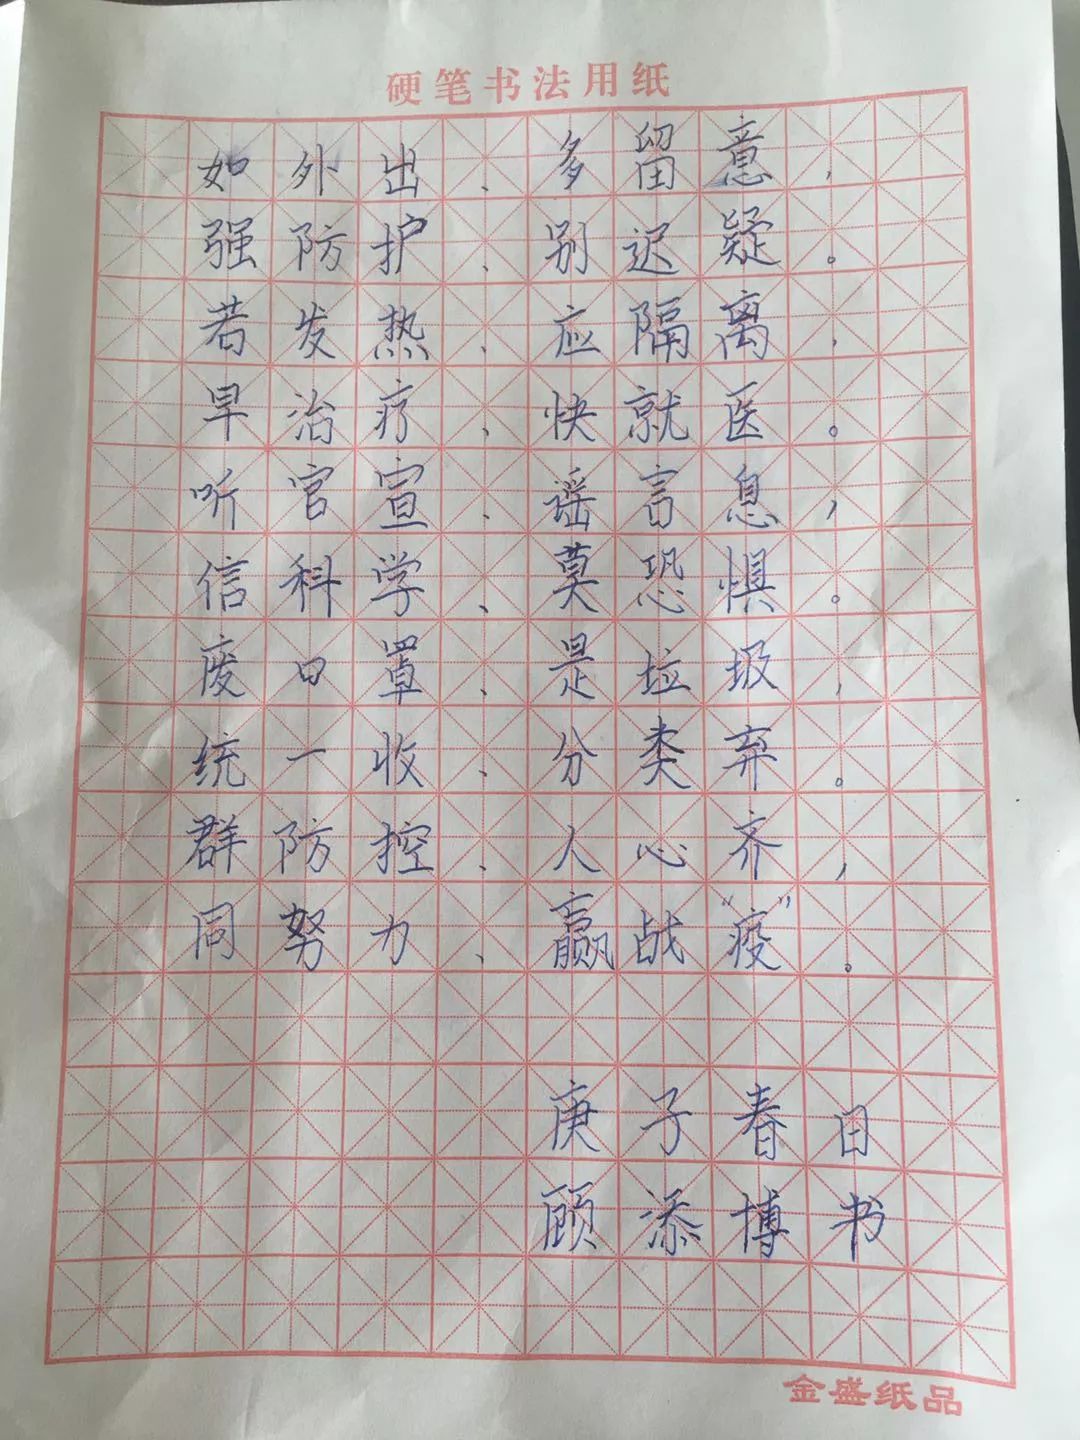 硬笔书法用纸
如外出、多留意，
强防护、别迟疑。
若发热、应隔离，
早治疗、快就医。
听官宣、谣言息，
信科学、莫恐惧。
废口罩、是垃圾，
统一收、分类弃。
群防控、人心齐，
同努力、赢战“疫”。
庚子春日
顾添博书
金盛纸品